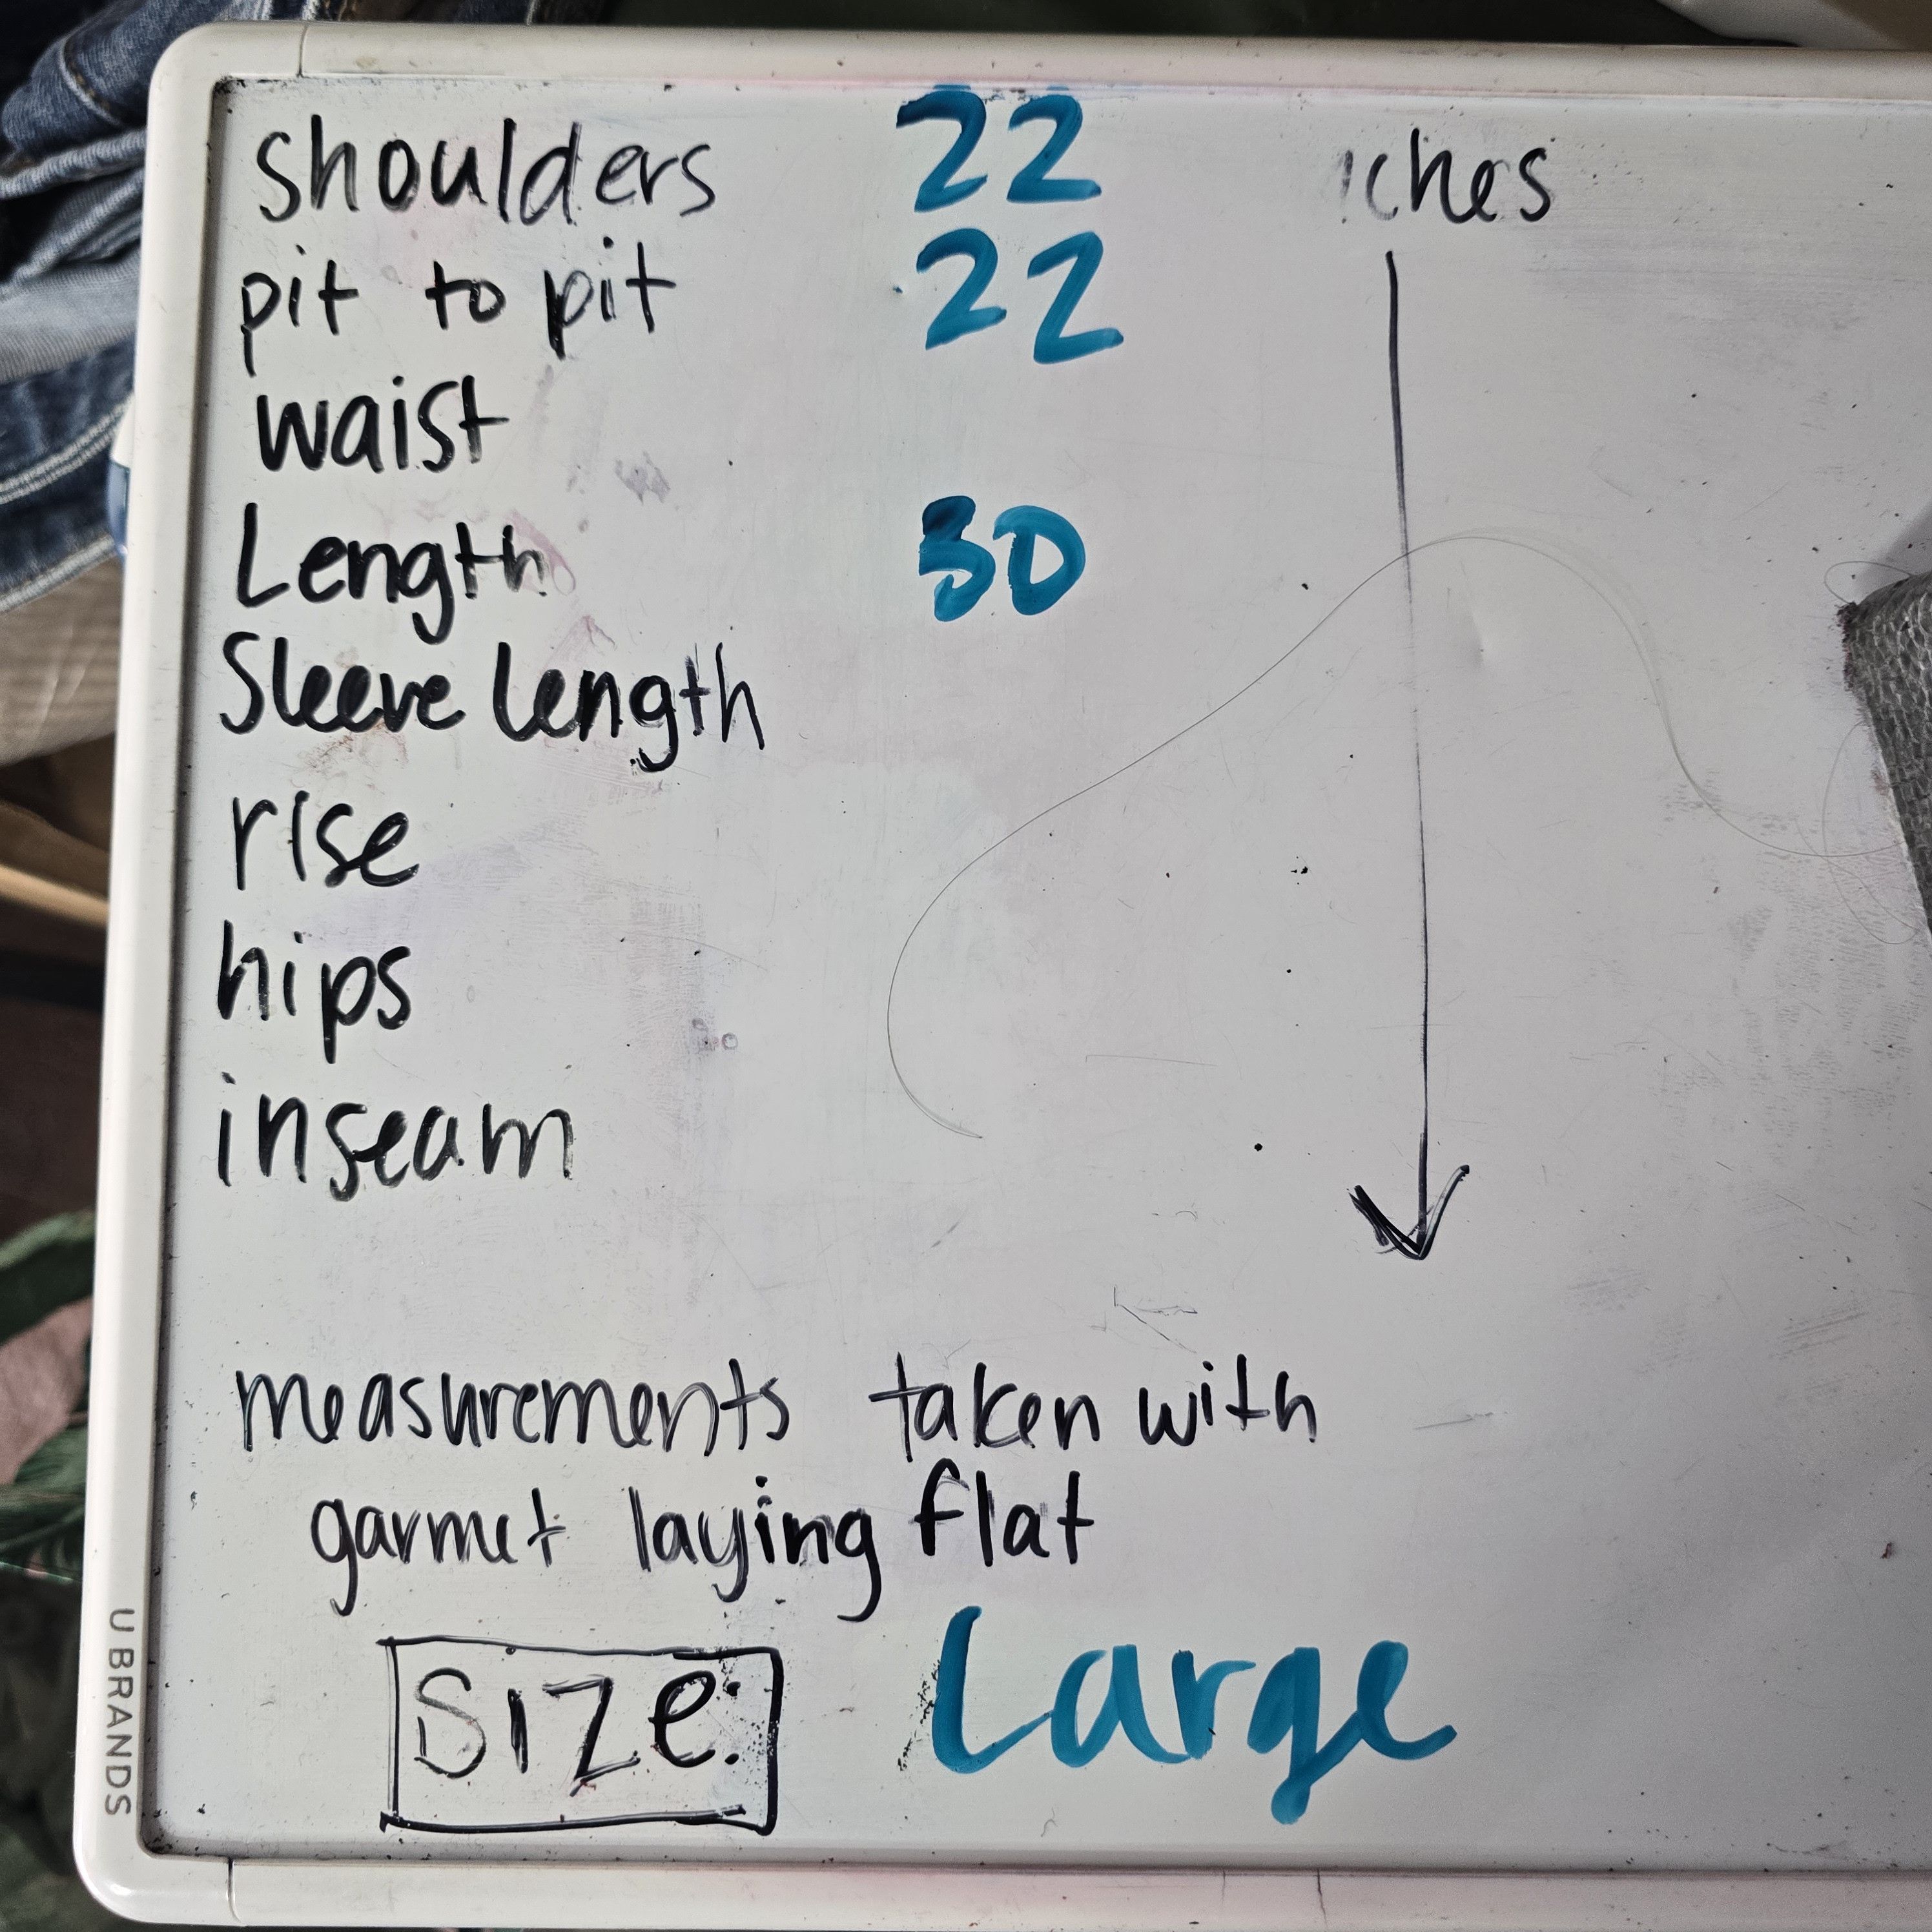 shoulders 22 ches
pit to pit 22
waist
Length 30
Sleeve length
rise
hips
inseam
measurements taken with
garmet laying flat
Size: Large
U BRANDS